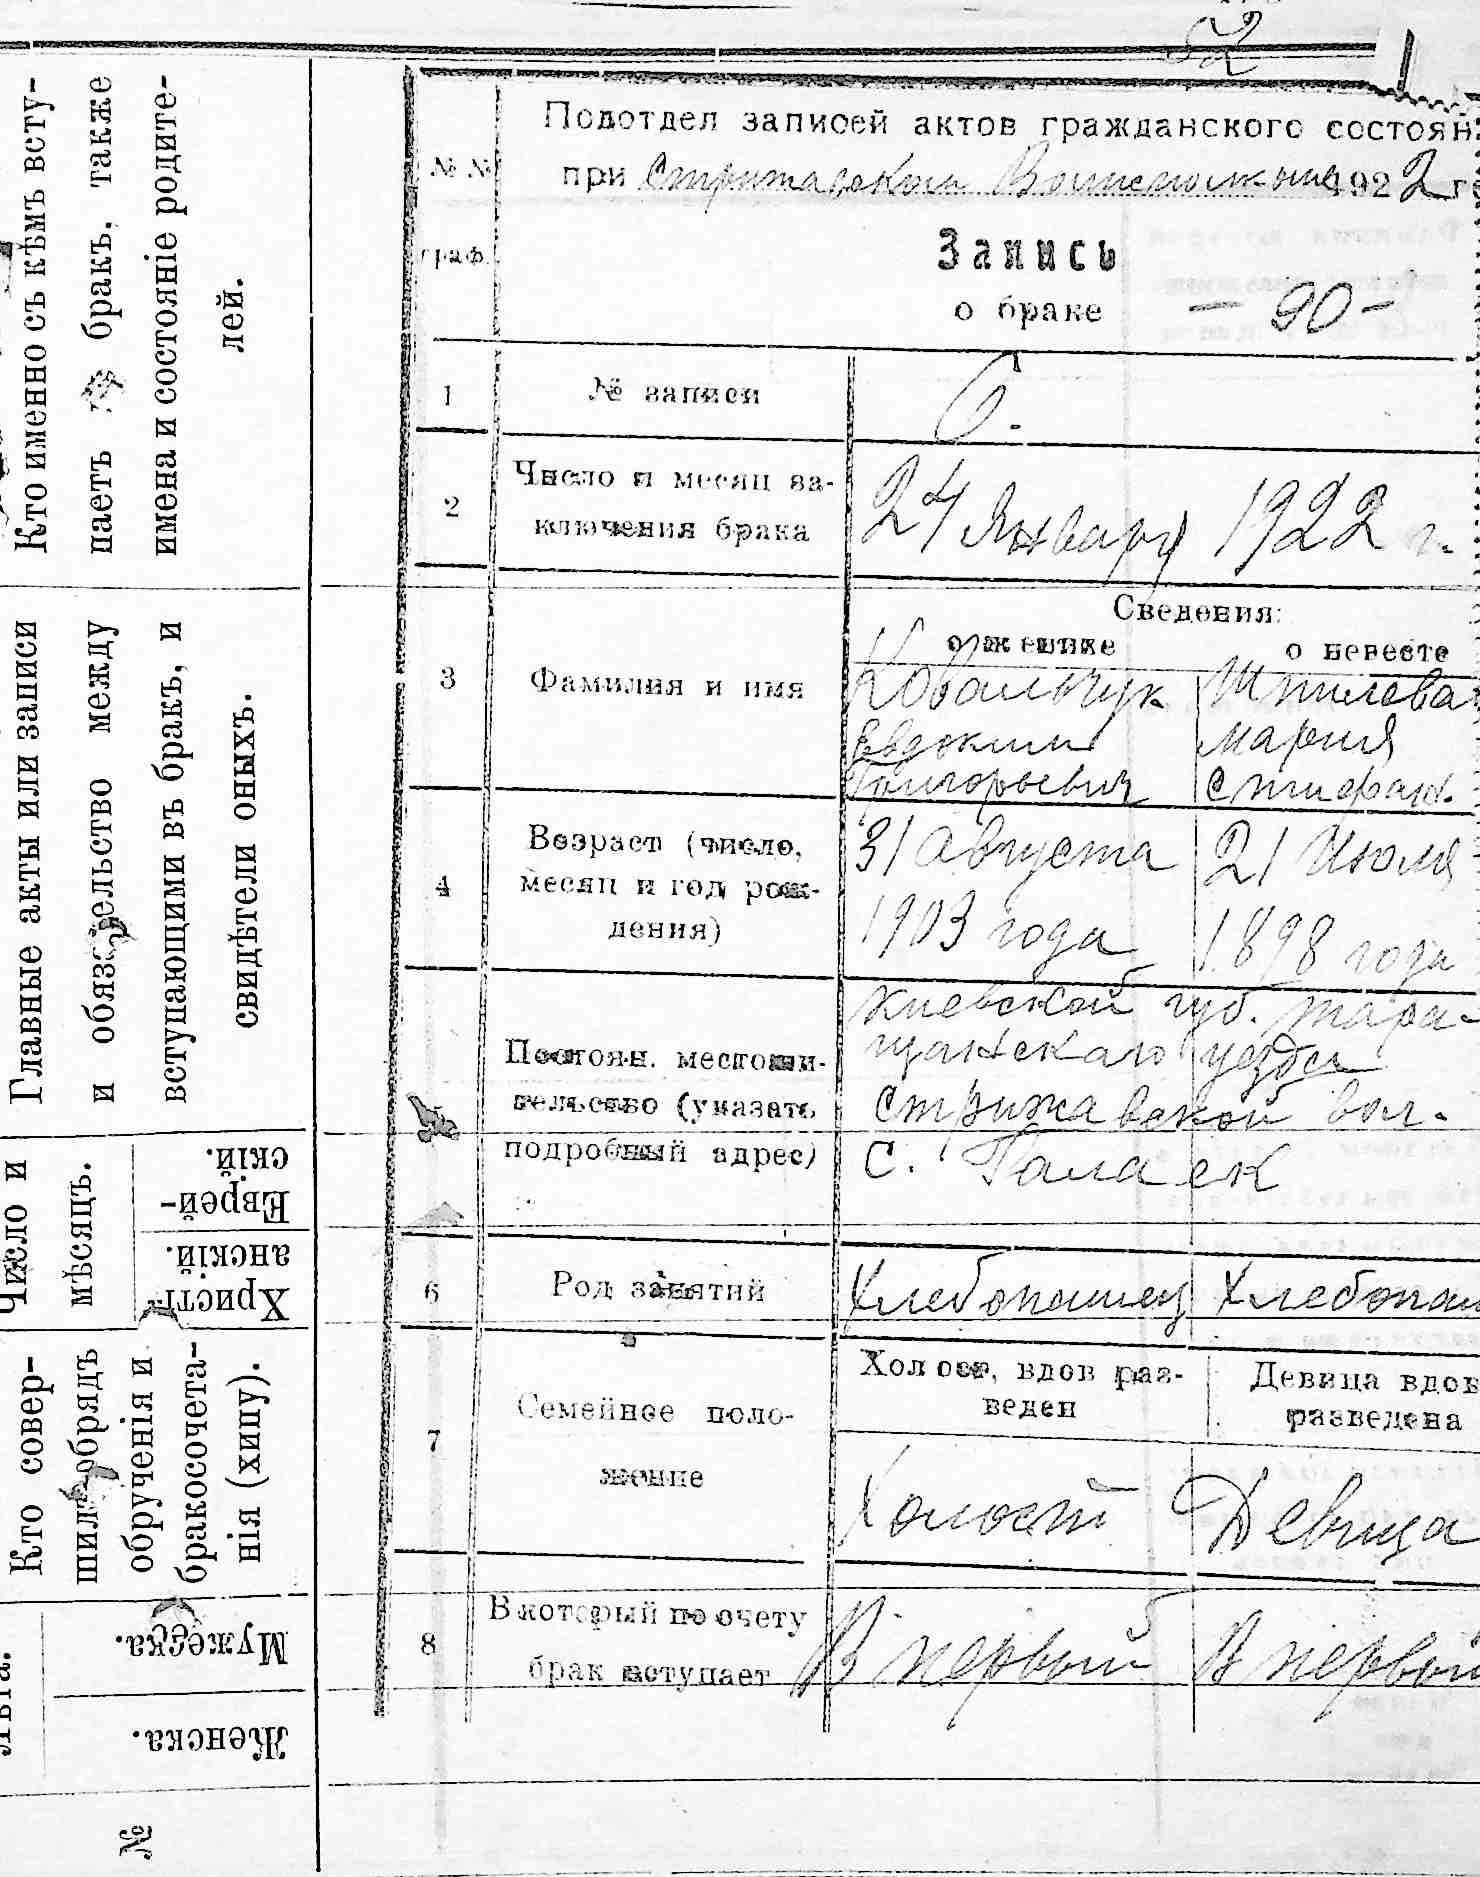 52
Кто именно съ кѣмъ всту-
паетъ бракъ, также
имена и состояніе родите-
лей.
Главные акты или записи
и обяза ельство между
вступающими въ бракъ, и
свидѣтели оныхъ.
Число и
мѣсяцъ.
Еврей-
скій.
Христі-
анскій.
Кто совер-
шилъ обрядъ
обрученія и
бракосочета-
нія (хипу).
Лѣта.
Мужеска.
Женска.
№
Подотдел записей актов гражданского состоян
при Стрижавском Волисполкоме 1922 г.
№ №
граф.
Запись
о браке — 90 —
1 № записи 6.
2 Число и месяц за-
ключения брака
24 Января 1922 г.
Сведения:
о женихе о невесте
3 Фамилия и имя
Ковальчук Шпилевая
Евдоким Мария
Григорьевич Стифан.
4 Возраст (число,
месяц и год рож-
дения)
31 Августа 21 Июля
1903 года 1898 года
Постоян. местожи-
тельство (указать
подробный адрес)
Киевской губ. Тара-
щанскаго уезда
Стрижавской вол.
С. Галаек
6 Род занятий Хлебопашец Хлебопаш
7 Семейное поло-
жение
Холост, вдов раз-
веден
Девица вдов
разведена
Холост Девица
8 В который по счету
брак вступает
В первый В первый